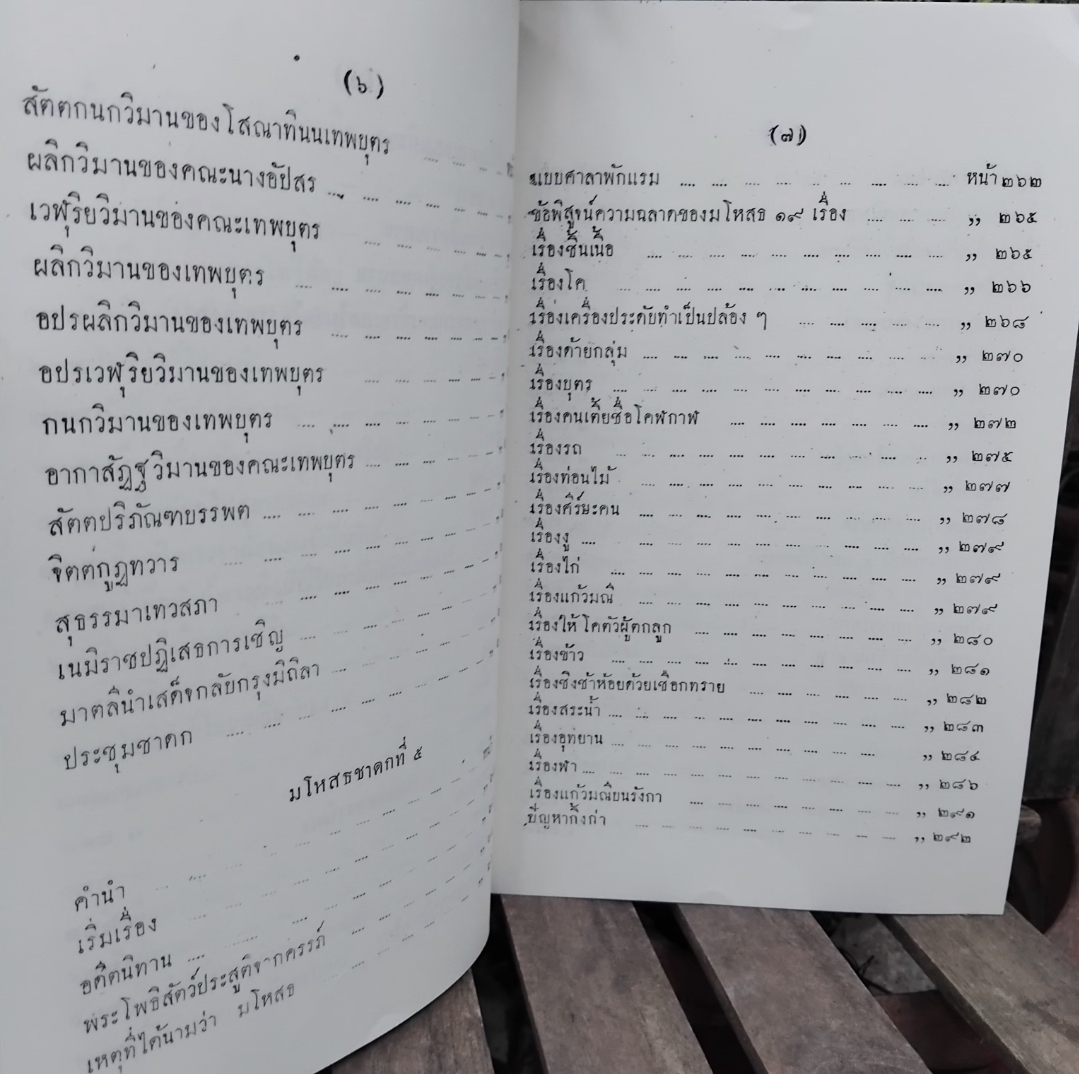 (๖)
สัตตกนกวิมานของโสณาทินนเทพบุตร .... ....
ผลิกวิมานของคณะนางอัปสร .... .... .... ....
เวฬุริยวิมานของคณะเทพบุตร .... .... .... ....
ผลิกวิมานของเทพบุตร .... .... .... .... .... ....
อปรผลิกวิมานของเทพบุตร .... .... .... .... ....
อปรเวฬุริยวิมานของเทพบุตร .... .... .... ....
กนกวิมานของเทพบุตร .... .... .... .... .... ....
อากาสัฏฐวิมานของคณะเทพบุตร .... .... .... ....
สัตตปริภัณฑบรรพต .... .... .... .... .... ....
จิตตกูฏทวาร .... .... .... .... .... .... ....
สุธรรมาเทวสภา .... .... .... .... .... ....
เนมิราชปฏิเสธการเชิญ .... .... .... .... ....
มาตลีนำเสด็จกลับกรุงมิถิลา .... .... .... ....
ประชุมชาดก .... .... .... .... .... ....
มโหสธชาดกที่ ๕
คำนำ .... .... .... .... .... .... .... ....
เริ่มเรื่อง .... .... .... .... .... .... ....
อดีตนิทาน .... .... .... .... .... ....
พระโพธิสัตว์ประสูติจากครรภ์ .... .... ....
เหตุที่ได้นามว่า มโหสธ .... .... ....
(๗)
แบบศาลาพักแรม .... .... .... .... .... .... .... .... หน้า ๒๖๒
ข้อพิสูจน์ความฉลาดของมโหสธ ๑๙ เรื่อง .... .... .... ,, ๒๖๕
เรื่องชิ้นเนื้อ .... .... .... .... .... .... .... .... .... ,, ๒๖๕
เรื่องโค .... .... .... .... .... .... .... .... .... ,, ๒๖๖
เรื่องเครื่องประดับทำเป็นปล้อง ๆ .... .... .... .... ,, ๒๖๘
เรื่องด้ายกลุ่ม .... .... .... .... .... .... .... .... ,, ๒๗๐
เรื่องบุตร .... .... .... .... .... .... .... .... .... ,, ๒๗๐
เรื่องคนเตี้ยชื่อโคฬกาฬ .... .... .... .... .... .... ,, ๒๗๒
เรื่องรถ .... .... .... .... .... .... .... .... .... ,, ๒๗๕
เรื่องท่อนไม้ .... .... .... .... .... .... .... .... ,, ๒๗๗
เรื่องศีรษะคน .... .... .... .... .... .... .... .... ,, ๒๗๘
เรื่องงู .... .... .... .... .... .... .... .... .... ,, ๒๗๙
เรื่องไก่ .... .... .... .... .... .... .... .... .... ,, ๒๗๙
เรื่องแก้วมณี .... .... .... .... .... .... .... .... ,, ๒๗๙
เรื่องให้โคตัวผู้ตกลูก .... .... .... .... .... .... ,, ๒๘๐
เรื่องข้าว .... .... .... .... .... .... .... .... .... ,, ๒๘๑
เรื่องชิงช้าห้อยด้วยเชือกทราย .... .... .... .... .... ,, ๒๘๒
เรื่องสระน้ำ .... .... .... .... .... .... .... .... ,, ๒๘๓
เรื่องอุทยาน .... .... .... .... .... .... .... .... ,, ๒๘๔
เรื่องฬา .... .... .... .... .... .... .... .... .... ,, ๒๘๖
เรื่องแก้วมณีบนรังกา .... .... .... .... .... .... ,, ๒๙๑
ปัญหากิ้งก่า .... .... .... .... .... .... .... ,, ๒๙๒